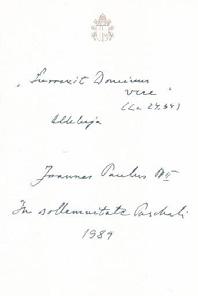 „Surrexit Dominus
vere"
(Lc 24,34)
Alleluja
Joannes Paulus PP II
In sollemnitate Paschali
1989